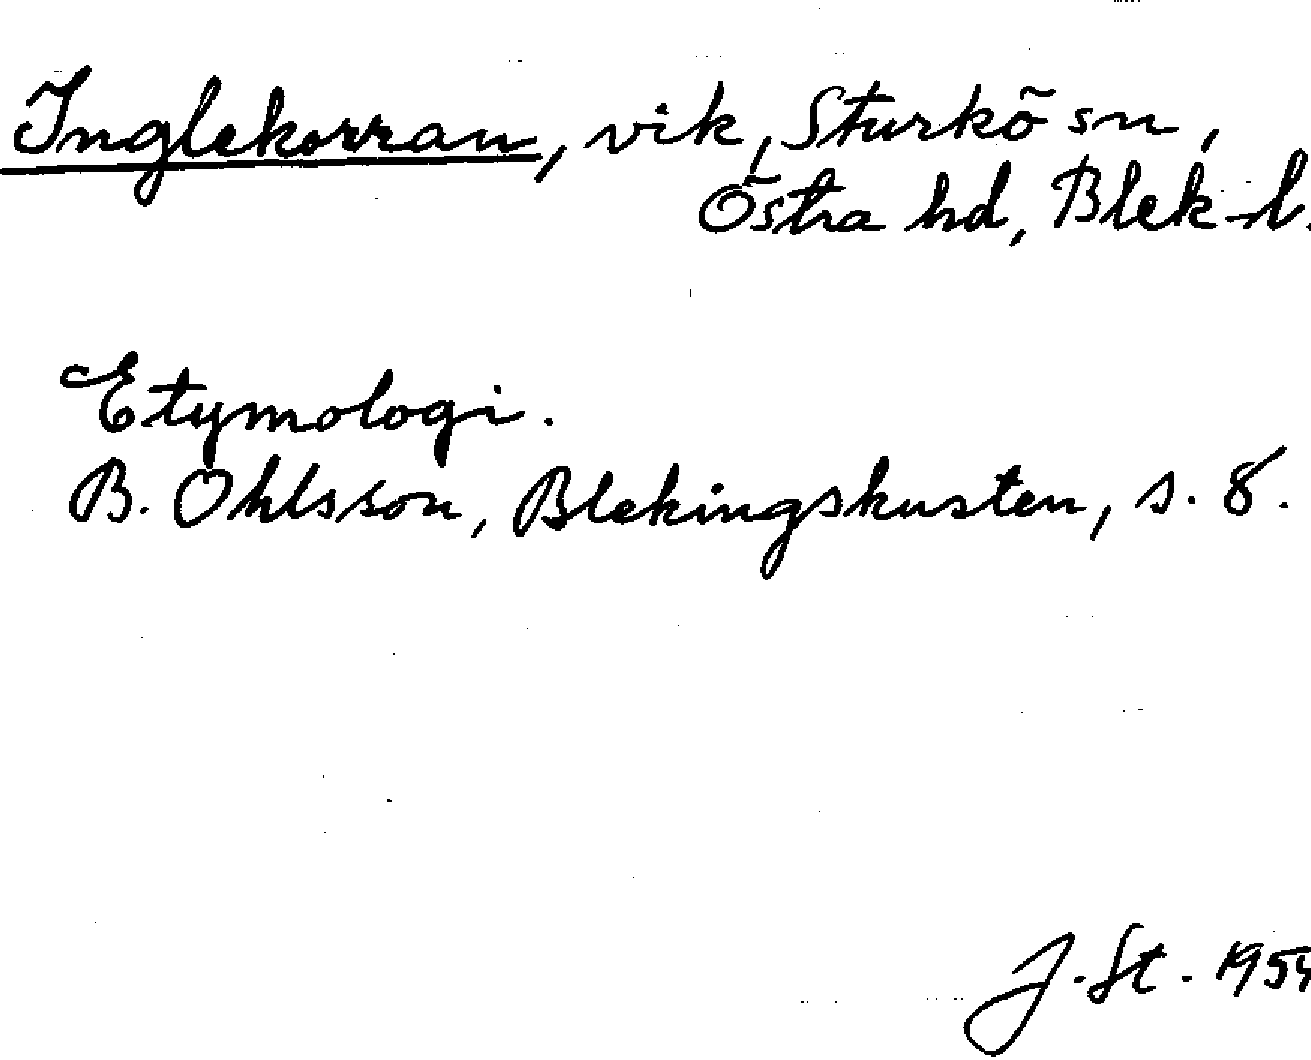 Inglekorran, vik, Sturkö sn,
Östra hd, Blek. l.
Etymologi.
B. Ohlsson, Blekingskusten, s. 8.
J. St.